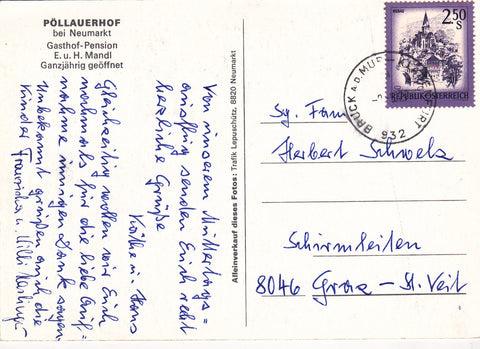 PÖLLAUERHOF
bei Neumarkt
Gasthof-Pension
E. u. H. Mandl
Ganzjährig geöffnet
Von unserem Muttertags=
ausflug senden Euch recht
herzliche Grüße
Käthe u. Hans
Gleichzeitig wollen wir Euch
nochmals für die liebe Auf=
nahme innigen Dank sagen.
Unbekannt grüßen auch die
Kinder u. Willi
Alleinverkauf dieses Fotos: Trafik Lepuschütz, 8820 Neumarkt
2.50
S
REPUBLIK ÖSTERREICH
BRUCK A.D. MUR
932
Sg. Fam
Herbert
Schirmleiten
8046 Graz - St. Veit